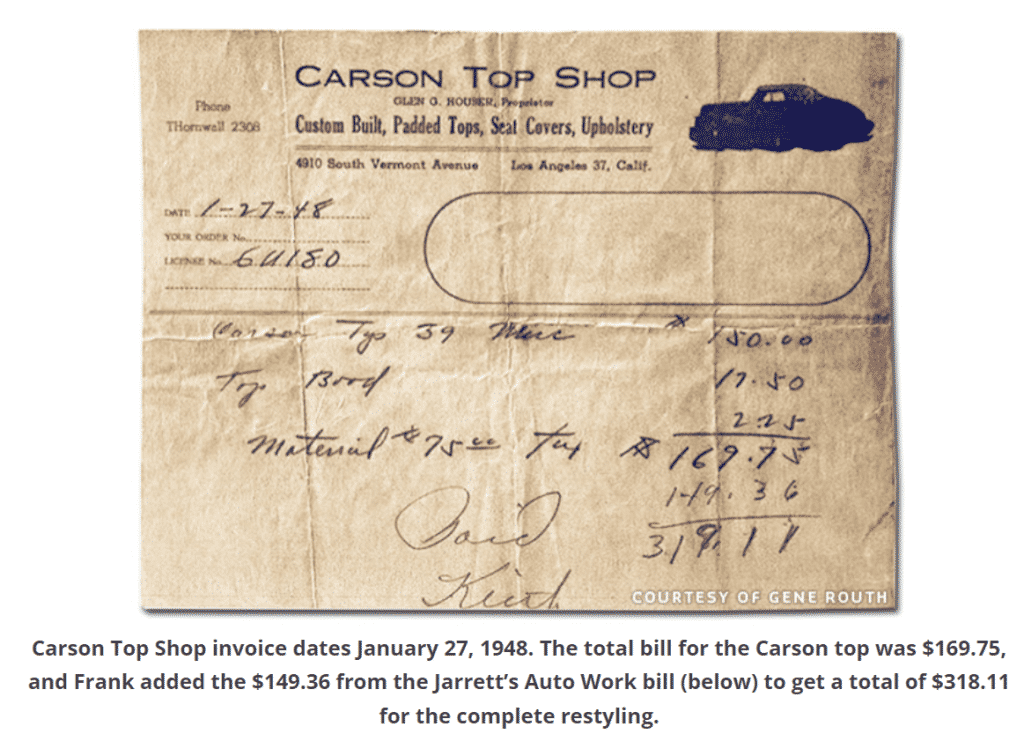 CARSON TOP SHOP
GLEN G. HOUSER, Proprietor
Phone
THornwall 2308
Custom Built, Padded Tops, Seat Covers, Upholstery
4910 South Vermont Avenue Los Angeles 37, Calif.
DATE 1-27-48
YOUR ORDER No.
LICENSE No. 6U180
Carson Top 39 Merc $ 150.00
Top Boot 17.50
2.25
Material $75.00 Tax $ 169.75
149.36
319.11
Paid
COURTESY OF GENE ROUTH
Carson Top Shop invoice dates January 27, 1948. The total bill for the Carson top was $169.75,
and Frank added the $149.36 from the Jarrett’s Auto Work bill (below) to get a total of $318.11
for the complete restyling.